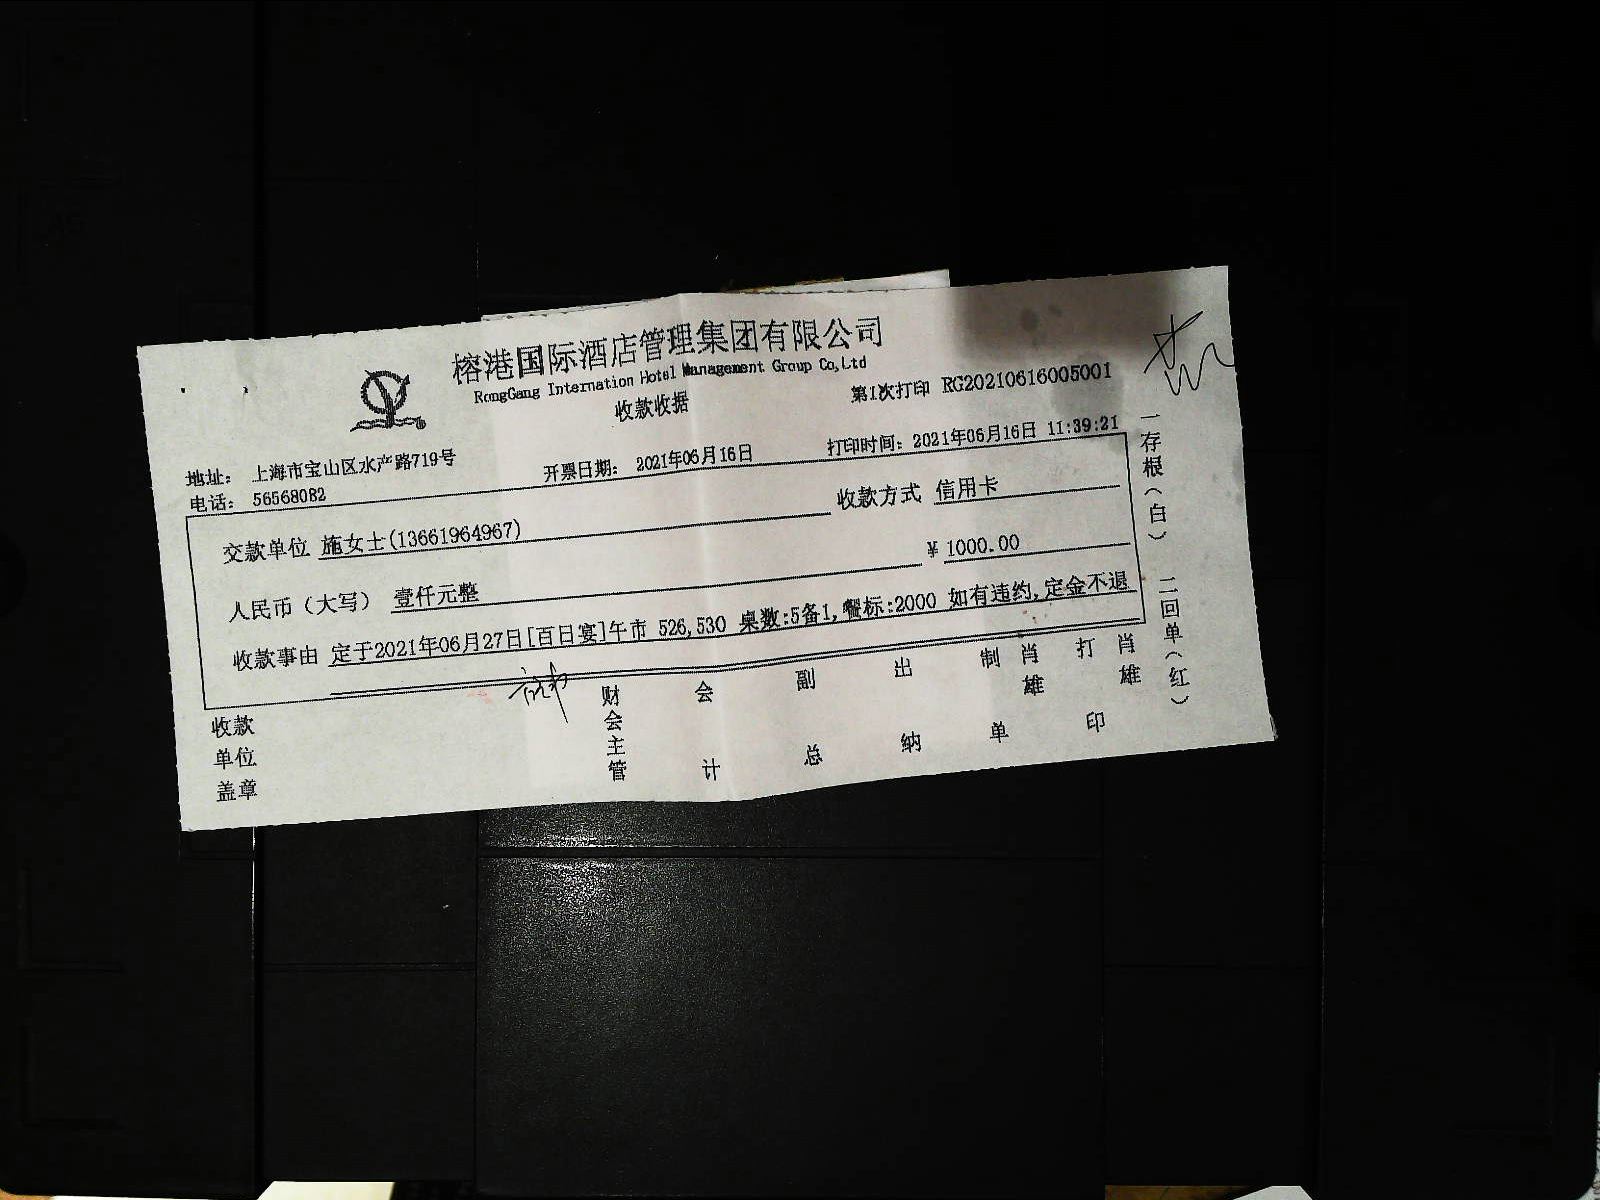 榕港国际酒店管理集团有限公司
RongGang Internation Hotel Management Group Co,Ltd
收款收据
第1次打印 RG20210616005001
地址： 上海市宝山区水产路719号
电话： 56568082
开票日期： 2021年06月16日
打印时间：2021年06月16日 11:39:21
交款单位 施女士(13661964967)
收款方式 信用卡
人民币（大写） 壹仟元整
¥ 1000.00
收款事由 定于2021年06月27日[百日宴]午市 526,530 桌数:5备1,餐标:2000 如有违约,定金不退
收款单位盖章
财会主管
会计
副总
出纳
制单
肖雄
打印
肖雄
一存根（白） 二回单（红）